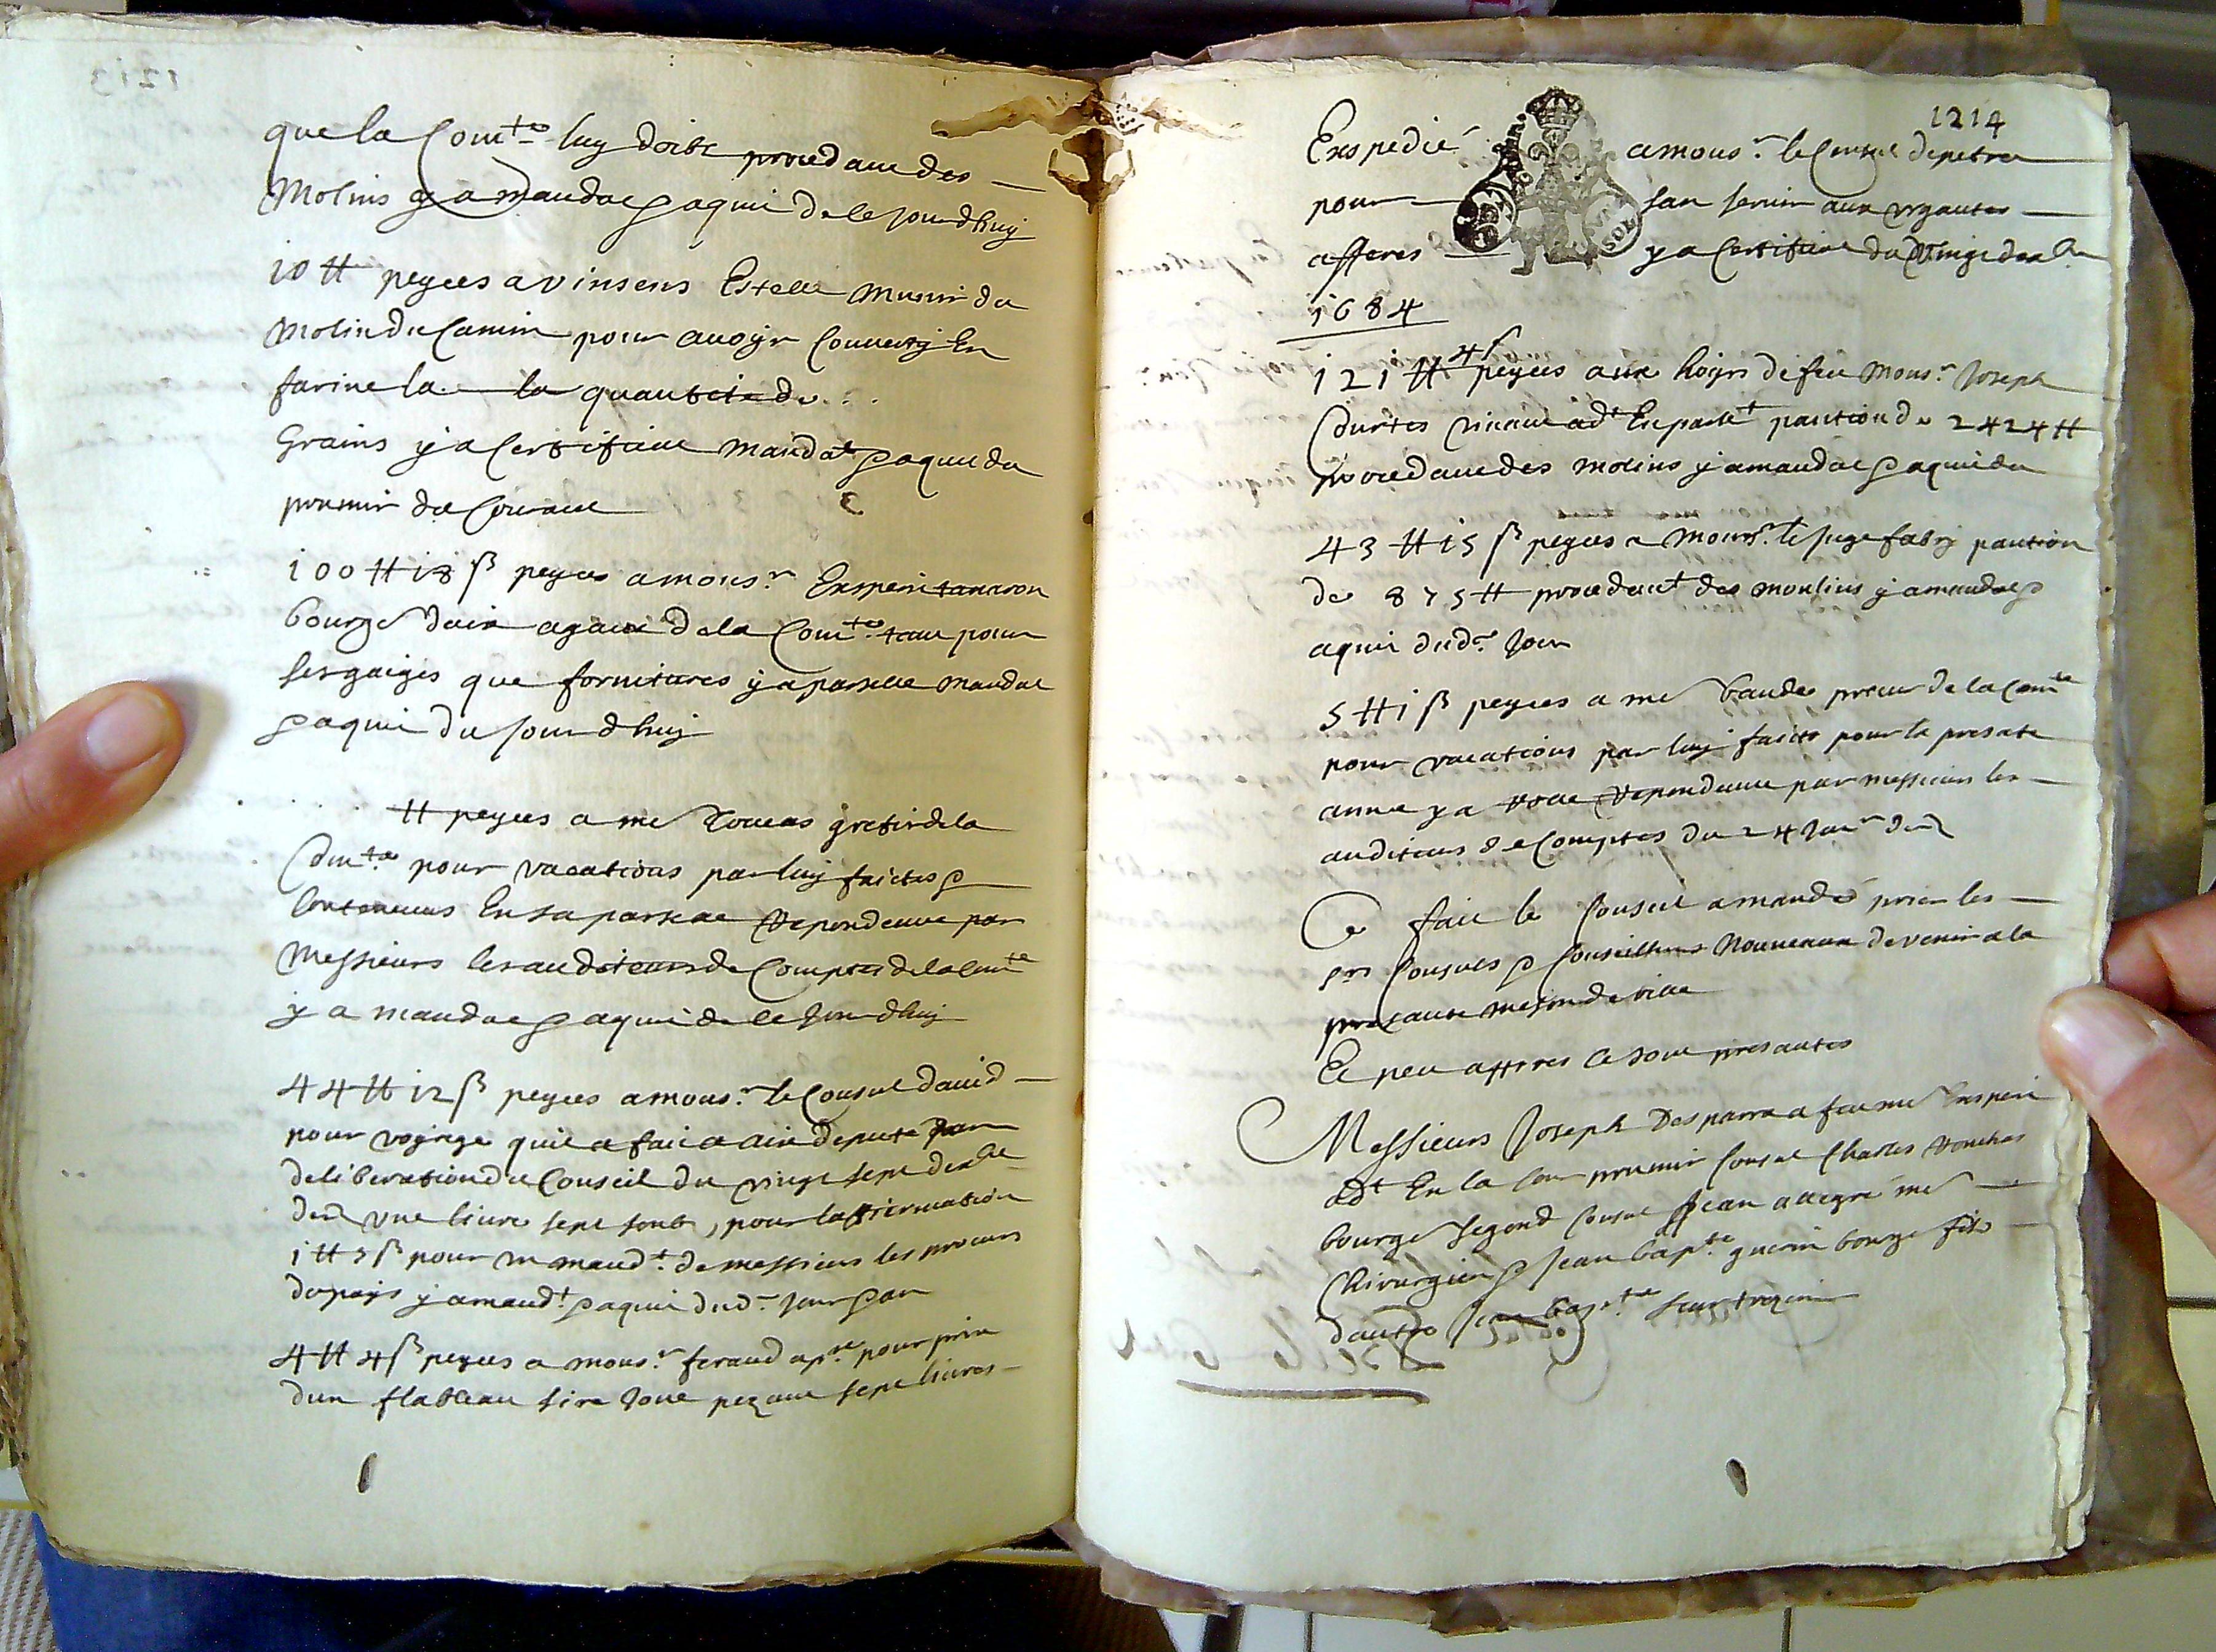 que la Com.te luy doibt procedant des
Molins y a mandat & aquit de ce jourdhuy
10 ₶ peyees a vinsens Estelle munir du
molin du Camin pour avoyr Converty En
farine la la quantité de . . .
Grains y a Certificat mandat & aquit du
premir du Courant
100 ₶ 13 ß peyees a mons.r Exsperit
bourge daix agant de la Com.te tant pour
ses gaiges que fornitures y a parselle mandat
& aquit du jourdhuy
. . . . ₶ peyees a me grefir de la
Com.te pour vacations par luy faictes &
Contenues En sa parselle Repondeue par
Messieurs les auditeurs de Comptes de la Com.te
y a mandat & aquit de ce jourdhuy
44 ₶ 12 ß peyees a mons.r le Consul david
pour voyage quil a fait a aix depute par
deliberation du Conseil du vingt sept dexbre
der une livre sept soubs, pour laffirmation
1 ₶ 5 ß pour un mand.t de messieurs les procurs
du pays y a mand.t & aquit dud.r jour & an
4 ₶ 4 ß peyees a mons.r feraud ap.re pour prix
dun flableau sire pezant sept livres
1214
Exspedié a mons.r le Consul
pour san servir aux urgantes
afferes y a Certificat du vingt dexbre
1684
121 ₶ 4 ß peyees aux hoyrs de feu Mons.r Joseph
ad.t En parle.t pantion de 2424 ₶
procedant des molins y a mandat & aquit du
43 ₶ 15 ß peyees a mons.r le juge fabry pantion
de 875 ₶ procedent des moulins y a mandat &
aquit dud.r Jour
5 ₶ 1 ß peyees a me baude procur de la Com.te
pour vacations par luy faictes pour la presante
anne y a Reponduue par messieurs les
auditeurs de Comptes du 24 Jan.r der
Ce fait le Conseil a mandé prier les
srs Consuls & Conseilhers Nouveaux de venir a la
presante meson de ville
Et peu apprres Ce sont presantes
Messieurs Joseph Desparra a feu me Exsperit
ad.t En la Cour premir Consul Charles
bourge segond Consul Jean allegre me
Chirurgien & Jean bap.te guerin bourge fils
dautre Jean bap.te